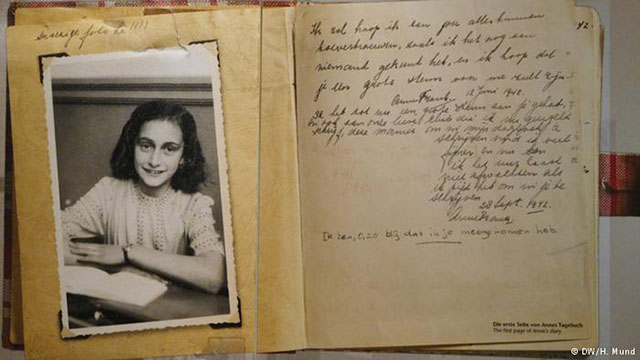 Snoezige foto hè !!!!
42.
Ik zal hoop ik aan jou alles kunnen
toevertrouwen, zoals ik het nog aan
niemand gekund heb, en ik hoop dat
je een grote steun voor me zult zijn.
Anne Frank. 12 Juni 1942.
Ik heb tot nu een grote steun aan je gehad,
en ook aan onze lieve club die ik nu geregeld
schrijf, deze manier om in mijn dagboek te
schrijven vind ik veel
fijner en nu kan
ik het uur haast
niet afwachten als
ik tijd heb om in je te
schrijven.
28 Sept. 1942.
Anne Frank.
Ik ben, o, zo blij dat ik je meegenomen heb.
Die erste Seite von Annes Tagebuch
The first page of Anne's diary
© DW/H. Mund